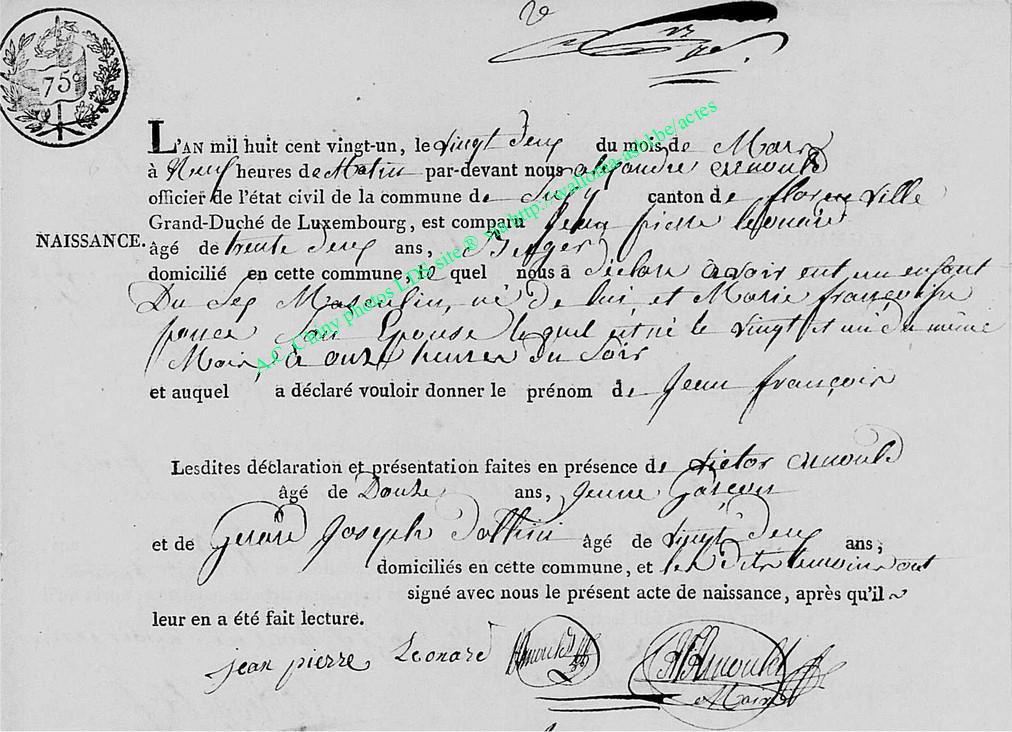 75c
L'AN mil huit cent vingt-un, le vingt deux du mois de Mars
à Neuf heures de Matin par-devant nous alexandre arnould
officier de l'état civil de la commune de canton de florenville
Grand-Duché de Luxembourg, est comparu Jean pierre Leonard
NAISSANCE.
âgé de trente deux ans, Berger
domicilié en cette commune, le quel nous a declare avoir eut un enfant
Du Sex Masculin, né de lui et Marie françoise
ponce son Epouse lequel est né le vingt et un du même
Mois, à onze heures du Soir
et auquel a déclaré vouloir donner le prénom de Jean françois
Lesdites déclaration et présentation faites en présence de victor arnould
âgé de Douze ans, Jeune Garcon
et de Gerard Joseph âgé de vingt deux ans,
domiciliés en cette commune, et les Dits temoins ont
signé avec nous le présent acte de naissance, après qu'il
leur en a été fait lecture.
jean pierre Leonard Arnould Arnould
A.C. Chiny photos LDS site ® via http://wallonia-asbl.be/actes